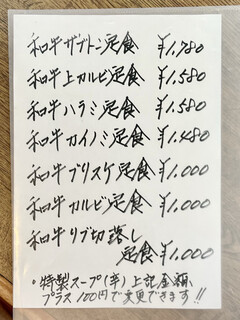 和牛ザブトン定食 ¥1.780
和牛上カルビ定食 ¥1.580
和牛ハラミ定食 ¥1.580
和牛カイノミ定食 ¥1.480
和牛ブリスケ定食 ¥1.000
和牛カルビ定食 ¥1.000
和牛リブ切落し
定食 ¥1.000
・特製スープ(辛)上記金額、
プラス100円で変更できます!!